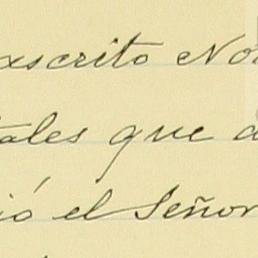 xscrito No
tales que a
ió el Señor